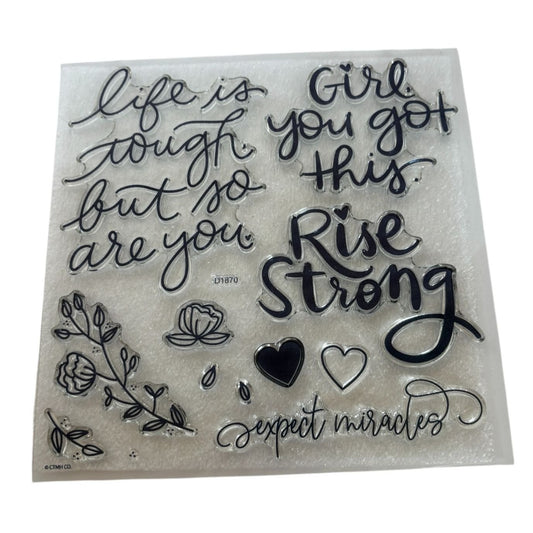 life is
tough,
but so
are you.
Girl
you got
this.
Rise
Strong
D1870
expect miracles
© CTMH CO.